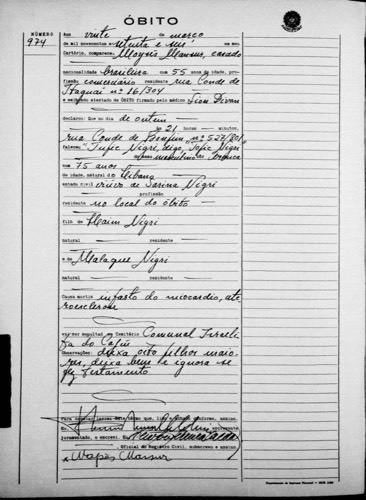 ÓBITO
NÚMERO
924
Aos vinte de março
de mil novecentos e setenta e seis em meu
Cartório, compareceu Moysés Mansur, casado
nacionalidade brasileira com 55 anos de idade, pro-
fissão comerciário residente rua Conde de
Itaguai nº 16/304
e exibindo atestado de ÓBITO firmado pelo médico
declarou: Que no dia de ontem
às 21 horas — minutos,
rua Conde de Bonfim nº 527/801
faleceu "Tufic Nigri, digo, Tofic Nigri"
sexo masculino côr branca
com 75 anos
de idade, natural do Líbano
estado civil viúvo de Sarina Nigri
profissão
residente no local do óbito
filh o de Haim Nigri
natural residente
e de Malaque Nigri
natural residente
Causa mortis infarto do miocardio, ate
roesclerose
vai ser sepultad o no Cemitério Comunal Israeli
ta do Cajú
Observações: deixa oito filhos maio
res, deixa bens e ignora se
fez testamento
Para constar lavrei este termo que, lido e achado conforme, assinam.
Eu,
juramentado, o escrevi. Eu
, Oficial do Registro Civil, subscrevo e assino
Mansur
Departamento de Imprensa Nacional